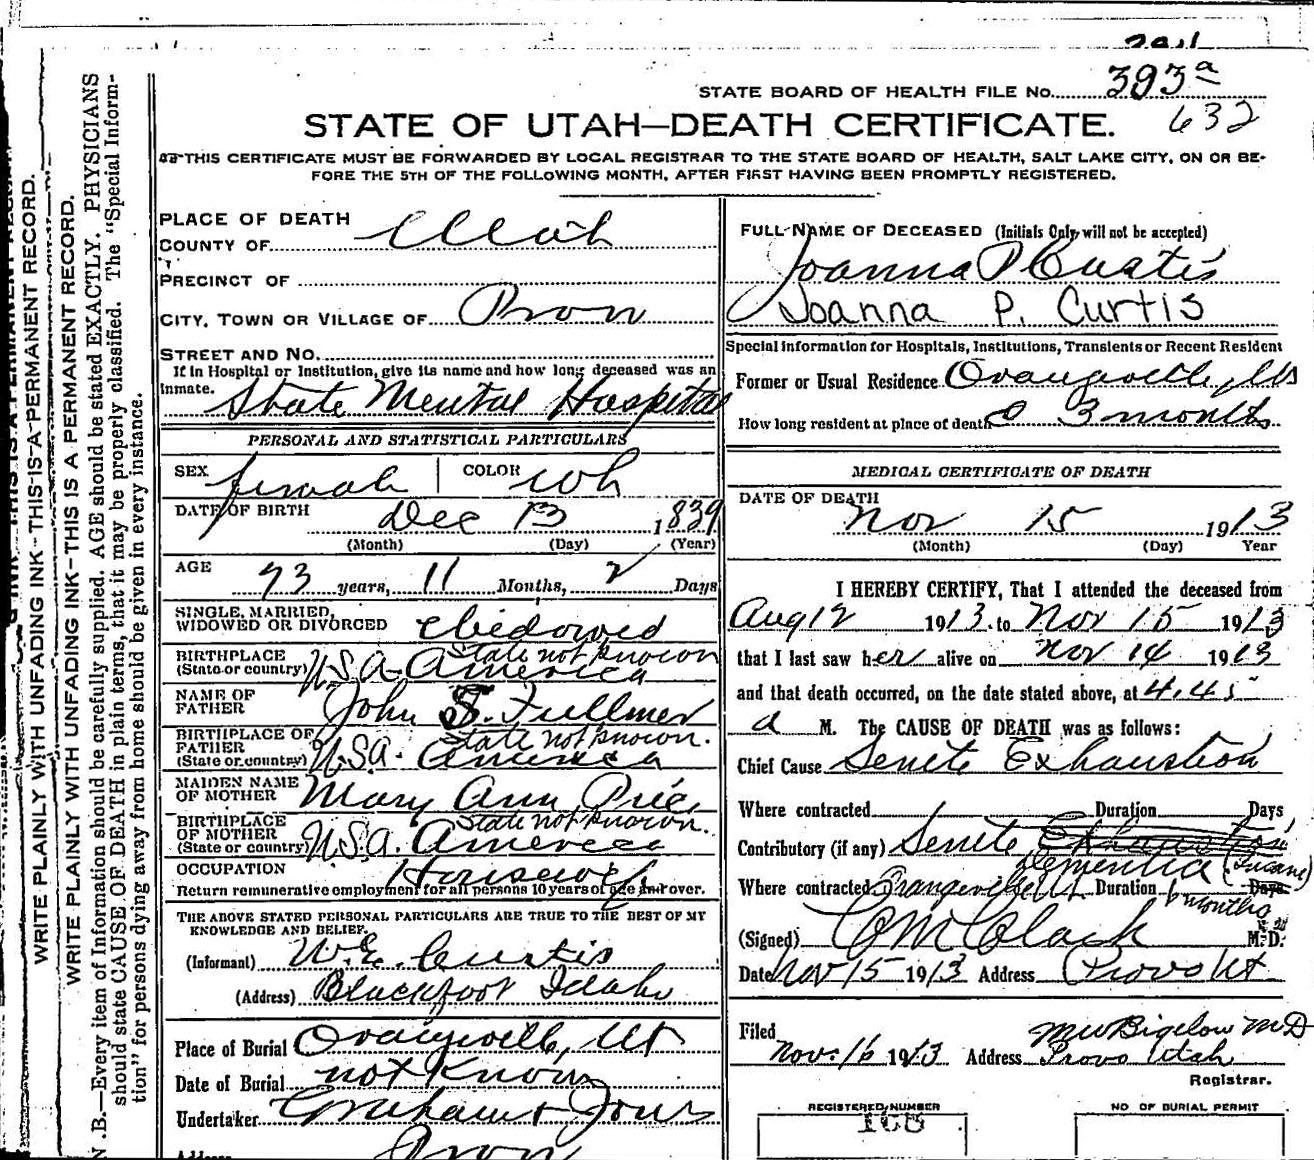 STATE BOARD OF HEALTH FILE No. 393a
632
STATE OF UTAH—DEATH CERTIFICATE.
THIS CERTIFICATE MUST BE FORWARDED BY LOCAL REGISTRAR TO THE STATE BOARD OF HEALTH, SALT LAKE CITY, ON OR BE-
FORE THE 5TH OF THE FOLLOWING MONTH, AFTER FIRST HAVING BEEN PROMPTLY REGISTERED.
WRITE PLAINLY WITH UNFADING INK-THIS-IS-A-PERMANENT RECORD.
WRITE PLAINLY WITH UNFADING INK-THIS IS A PERMANENT RECORD.
N.B.—Every item of Information should be carefully supplied. AGE should be stated EXACTLY. PHYSICIANS
should state CAUSE OF DEATH in plain terms, that it may be properly classified. The "Special Inform-
tion" for persons dying away from home should be given in every instance.
PLACE OF DEATH
COUNTY OF Utah
PRECINCT OF
CITY, TOWN OR VILLAGE OF Provo
STREET AND NO.
If in Hospital or Institution, give its name and how long deceased was an
inmate. State Mental Hospital
PERSONAL AND STATISTICAL PARTICULARS
SEX female COLOR wh
DATE OF BIRTH Dec 13 1839
(Month) (Day) (Year)
AGE 73 years, 11 Months, 2 Days
SINGLE, MARRIED,
WIDOWED OR DIVORCED widowed
BIRTHPLACE State not known
(State or country) U.S.A. America
NAME OF
FATHER John S. Fullmer
BIRTHPLACE OF
FATHER State not known.
(State or country) U.S.A. America
MAIDEN NAME
OF MOTHER Mary Ann Price
BIRTHPLACE
OF MOTHER State not known.
(State or country) U.S.A. America
OCCUPATION Housewife
Return remunerative employment for all persons 10 years of age and over.
THE ABOVE STATED PERSONAL PARTICULARS ARE TRUE TO THE BEST OF MY
KNOWLEDGE AND BELIEF.
(Informant) W.E. Curtis
(Address) Blackfoot Idaho
Place of Burial Orangeville, Ut
Date of Burial not Known
Undertaker Graham & Jones
Address Provo
FULL NAME OF DECEASED (Initials Only will not be accepted)
Joanna P Curtis
Joanna P. Curtis
Special Information for Hospitals, Institutions, Transients or Recent Resident
Former or Usual Residence Orangeville, Ut
How long resident at place of death 3 months
MEDICAL CERTIFICATE OF DEATH
DATE OF DEATH
Nov 15 1913
(Month) (Day) Year
I HEREBY CERTIFY, That I attended the deceased from
Aug 12 1913. to Nov 15 1913
that I last saw her alive on Nov 14 1913
and that death occurred, on the date stated above, at 4.45
a M. The CAUSE OF DEATH was as follows:
Chief Cause Senile Exhaustion
Where contracted Duration Days
Contributory (if any) Senile Exhaustion
Dementia (Insane)
Where contracted Orangeville Ut Duration 6 months Days
(Signed) M.D.
Date Nov 15 1913 Address Provo Ut
Filed MW Bigelow MD
Nov. 16 1913 Address Provo Utah
Registrar.
REGISTERED NUMBER
168
NO OF BURIAL PERMIT